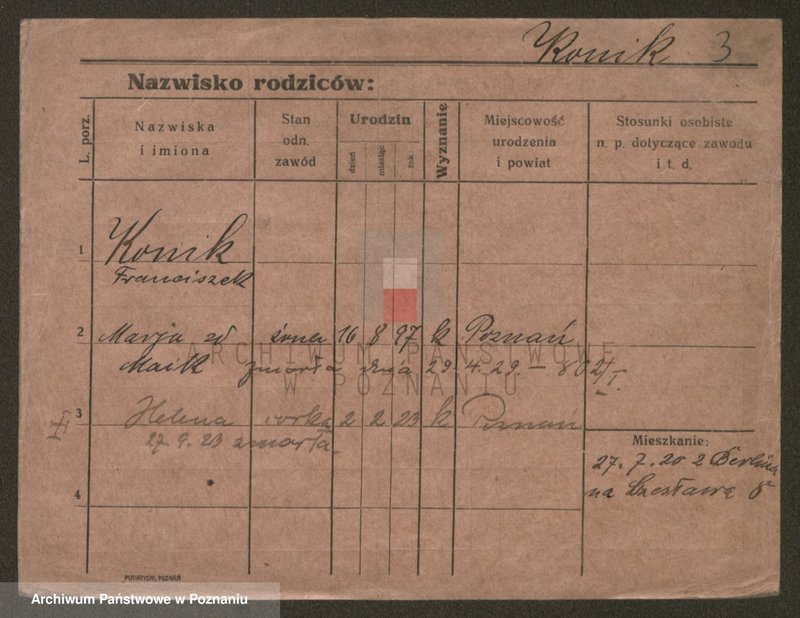 Konik 3
Nazwisko rodziców:
L. porz.
Nazwiska i imiona
Stan odn. zawód
Urodzin
dzień miesiąc rok
Wyznanie
Miejscowość urodzenia i powiat
Stosunki osobiste n. p. dotyczące zawodu i t. d.
1 Konik
Franciszek
2 Marja zd żona 16 8 97 k Poznań
Maik zmarła dnia 29.4.29. – 802/I.
II
3 Helena córka 2 2 23 k Poznań
27.9.23 zmarła.
4
Mieszkanie:
27.7.20 z Berlina
na Czesława 8
PUTIATYCKI, POZNAŃ
ARCHIWUM PAŃSTWOWE
W POZNANIU
Archiwum Państwowe w Poznaniu